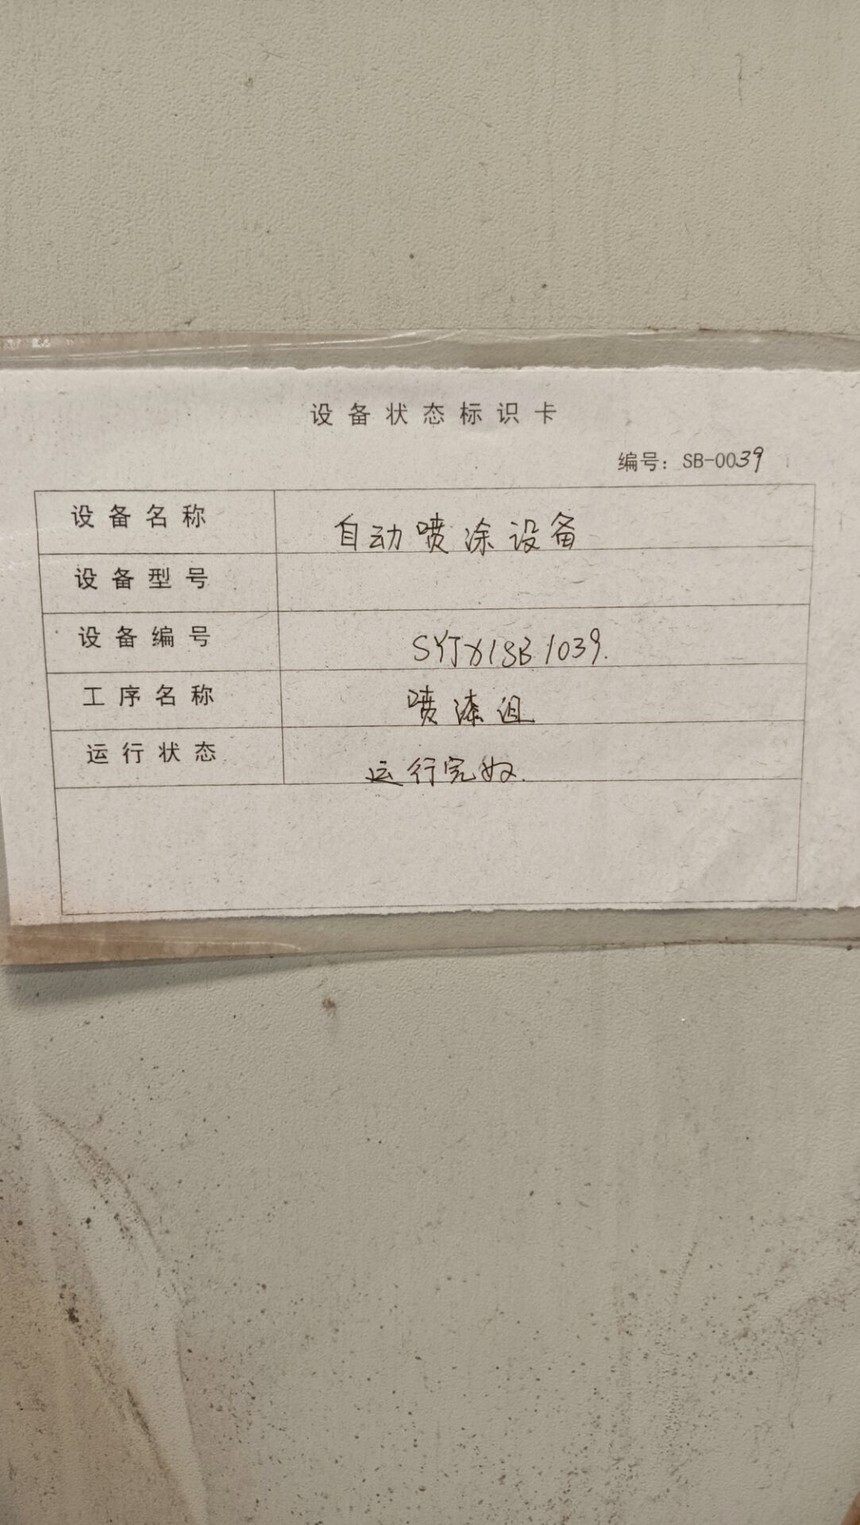 设备状态标识卡
编号：SB-0039
设备名称 自动喷涂设备
设备型号
设备编号 SYJX/SB1039.
工序名称 喷漆组
运行状态 运行完好.